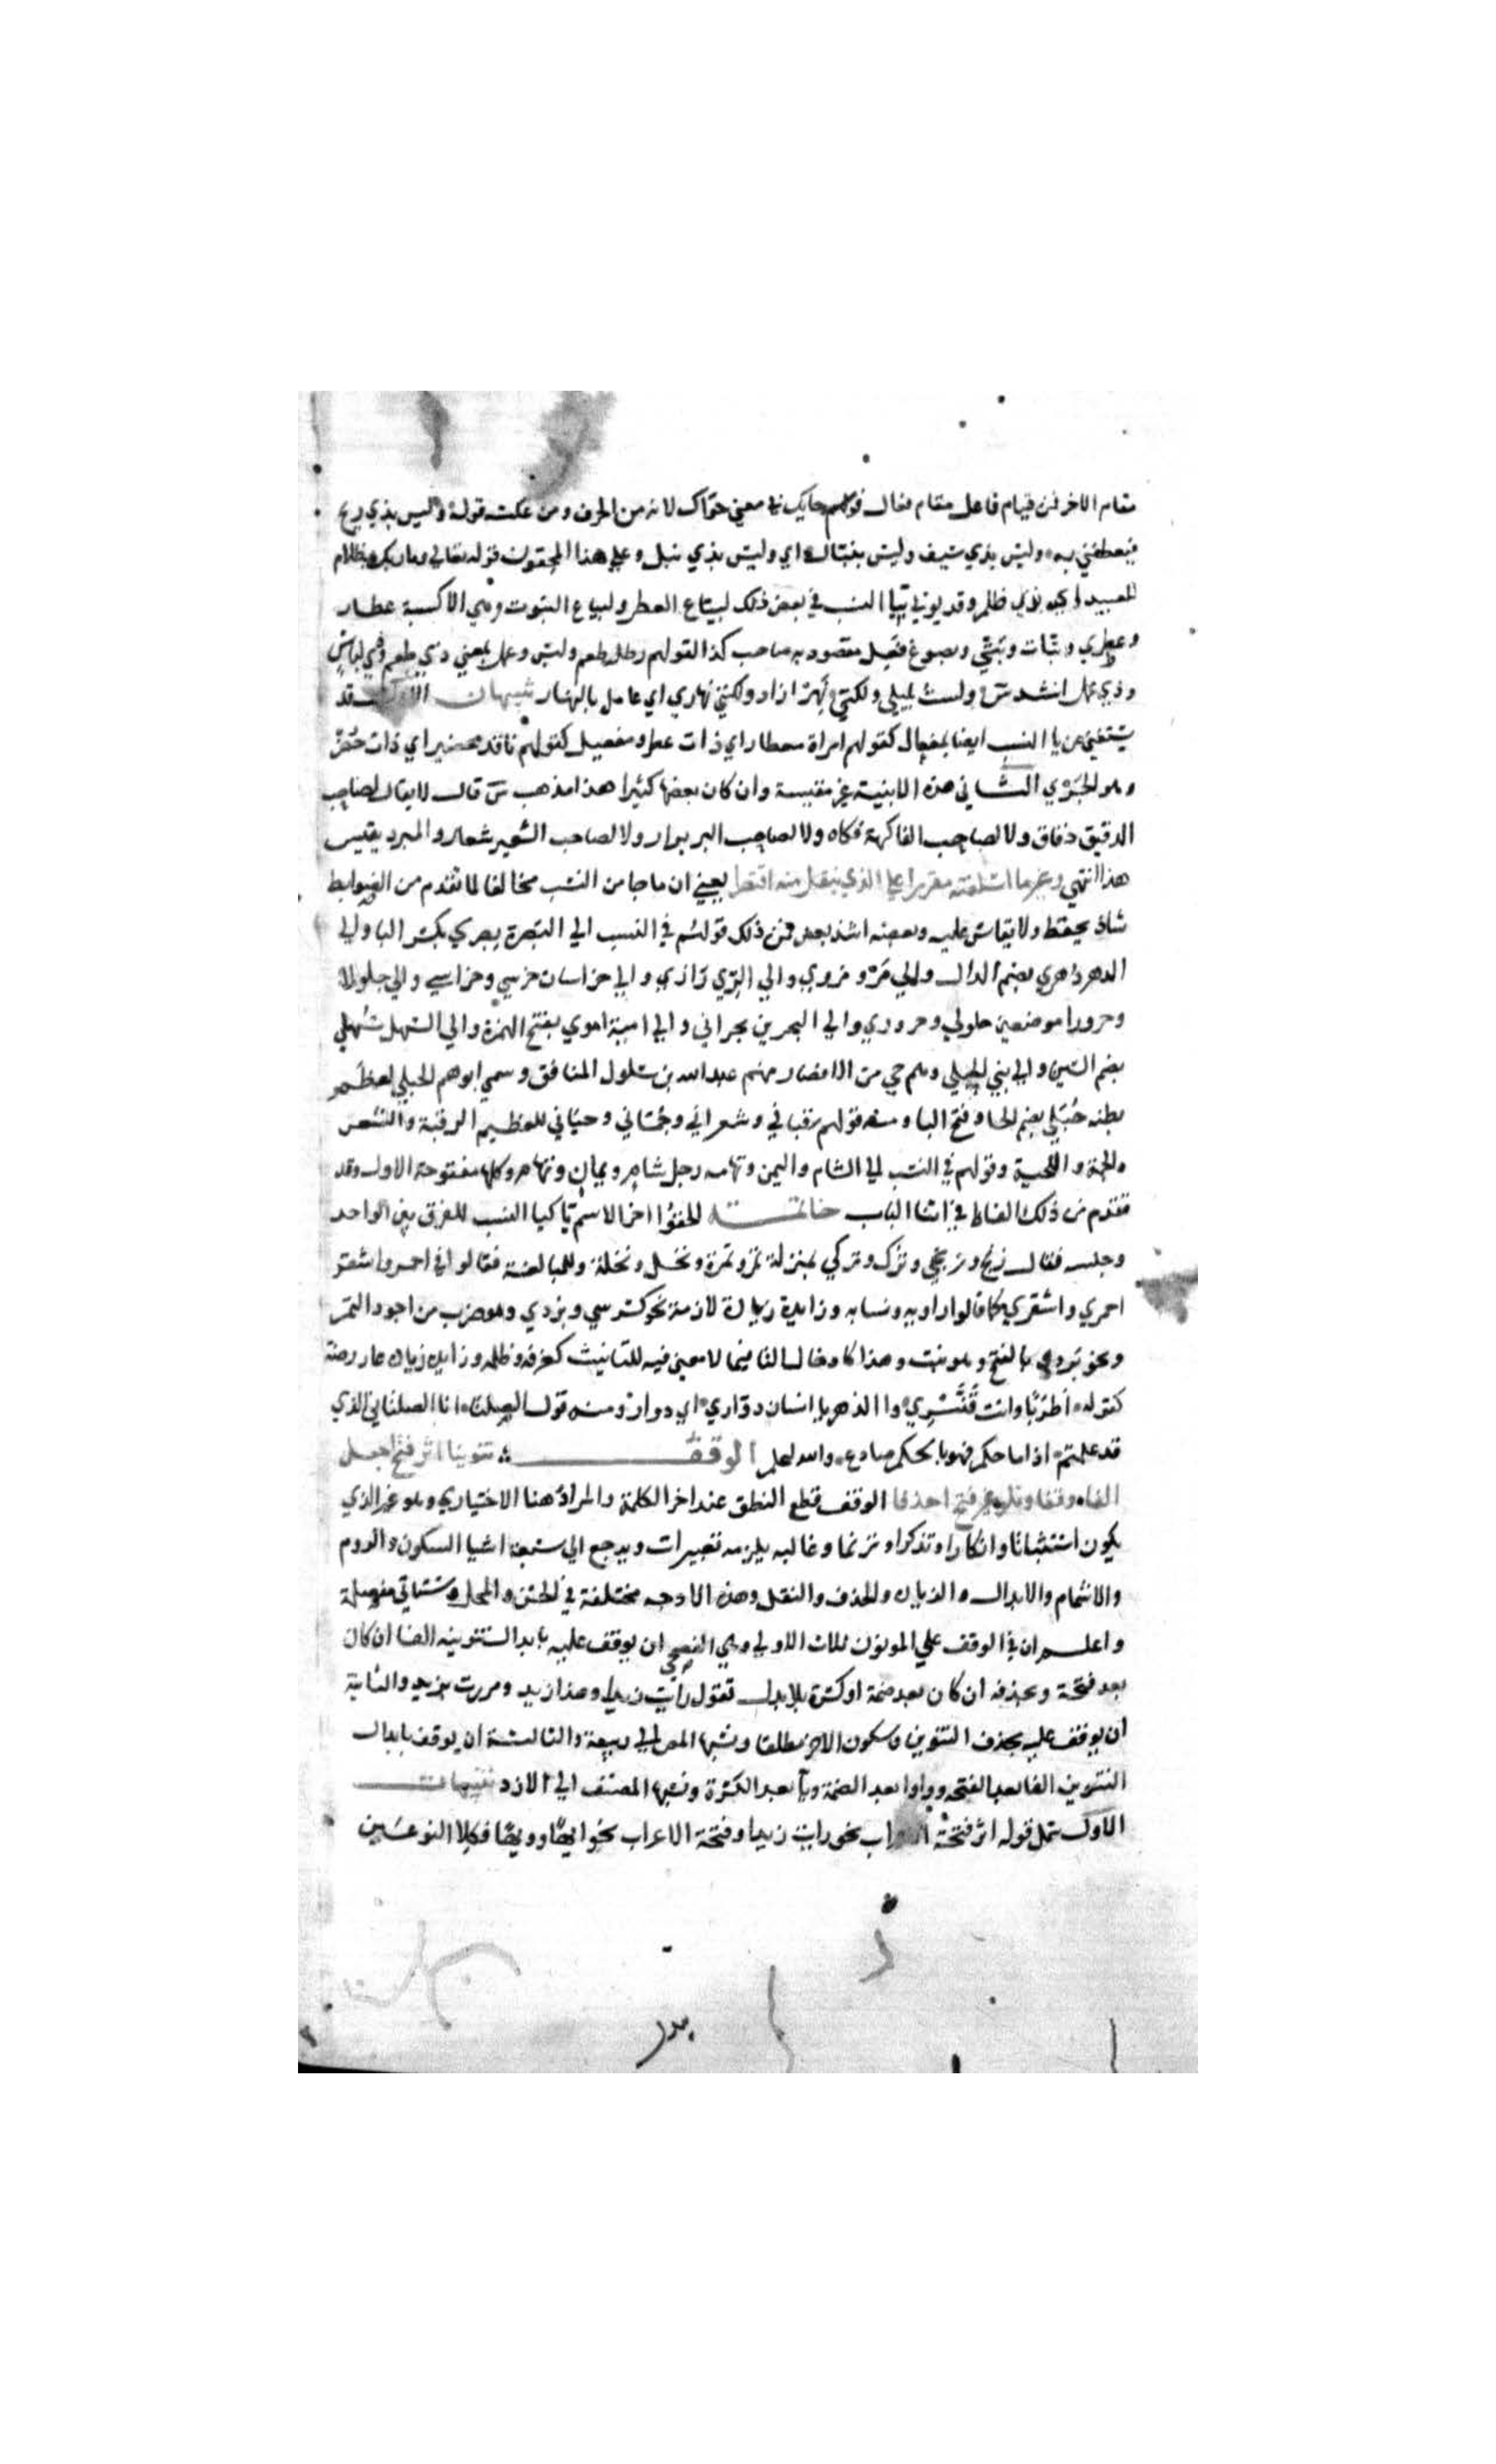 مقام الاخر فمن قيام فاعل مقام فعال قولهم حايك في معني حواك لانه من الحرف ومن عكسه قوله وليس بذي رمح
فيطعنني به وليس بذي سيف وليس بنبال اي وليس بذي نبل وعلي هذا المحققون قوله تعالي وما ربك بظلام
للعبيد اي بذي ظلم وقد يوتي بيا النسب في بعض ذلك لبياع العطر ولبياع البتوت وهي الاكسية عطار
وعطري وبتات وبتي ويصوغ فعل مقصود به صاحب كذا لقولهم رجل طعم ولبس وعمل بمعني ذي طعم وذي لباس
وذي عمل انشد س ولست بليلي ولكني نهر اراد ولكني نهاري اي عامل بالنهار تنبيهان الاول قد
يستغني عن يا النسب ايضا بمفعال كقولهم امراة معطار اي ذات عطر ومفعيل كقولهم ناقة محضير اي ذات حضر
وهو الجري الثاني هذه الابنية غير مقيسة وان كان بعضها كثيرا هذا مذهب س قال لا يقال لصاحب
الدقيق دقاق ولا لصاحب الفاكهة فكاه ولا لصاحب البر برار ولا لصاحب الشعير شعار والمبرد يقيس
هذا انتهي وغير ما اسلفته مقررا علي الذي ينقل منه اقتصرا يعني ان ما جا من النسب مخالفا لما تقدم من الضوابط
شاذ يحفظ ولا يقاس عليه وبعضه اشذ بعض فمن ذلك قولهم في النسب الي البصرة بصري بكسر البا والي
الدهر دهري بضم الدال والي مرو مروزي والي الري رازي والي خراسان خرسي وخراسي والي جلولا
وحرورا موضعين جلولي وحروري والي البحرين بحراني والي امية اموي بفتح الهمزة والي السهل سهلي
بضم السين والي بني الحبلي وهم حي من الانصار منهم عبد الله بن سلول المنافق وسمي ابوهم الحبلي لعظم
بطنه حبلي بضم الحا وفتح البا ومنه قولهم رقباني وشعراني وجماني ولحياني للعظيم الرقبة والشعر
والجمة واللحية وقولهم في النسب الي الشام واليمن وتهامه رجل شام ويمان وتهام وكلها مفتوحة الاول وقد
تقدم من ذلك الفاظ في اثنا الباب خاتمة الحقوا اخر الاسم يا كيا النسب للفرق بين الواحد
وجنسه فقال زنج وزنجي وترك وتركي بمنزلة تمر وتمرة ونخل ونخلة وللمبالغة فقالوا في احمر واشقر
احمري واشقري كما قالوا راوية ونسابه وزايدة زيادة لازمة نحو كرسي وبردي وهو ضرب من اجود التمر
ونحو بردي بالفتح وهو نبت وهذا كادخال التا فيما لا معني فيه للتانيث كغرفة وظلمة وزايدة زيادة عارضة
كقوله اطربا وانت قنسري والدهر بالانسان دواري اي دوار ومنه قول الصلتان انا الصلتاني الذي
قد علمتم اذا ما حكم فهو بالحكم صادع والله اعلم الوقف تنوينا اثر فتح اجعل
الفا وقفا وتلو غير فتح احذفا الوقف قطع النطق عند اخر الكلمة والمراد هنا الاختياري وهو غير الذي
يكون استثباتا وانكارا وتذكرا وترنما وغالبه يلزمه تغييرات ويرجع الي سبعة اشيا السكون والروم
والاشمام والابدال والزيادة والحذف والنقل وهذه الاوجه مختلفة في الحسن والمحل وستاتي مفصلة
واعلم ان في الوقف علي المنون ثلاث الاولي وهي الفصحي ان يوقف عليه بابدال تنوينه الفا ان كان
بعد فتحة وبحذفه ان كان بعد ضمة او كسرة بلا بدل تقول رايت زيدا وهذا زيد ومررت بزيد والثانية
ان يوقف عليه بحذف التنوين وسكون الاخر مطلقا ونسبها المص الي ربيعة والثالثة ان يوقف بابدال
التنوين الفا بعد الفتحه وواوا بعد الضمة ويا بعد الكسرة ونسبها المصنف الي الازد تنبيهات
الاول شمل قوله اثر فتحة الاعراب نحو رايت زيدا وفتحة الاعراب نحو ايها وويها فكلا النوعين
بدر